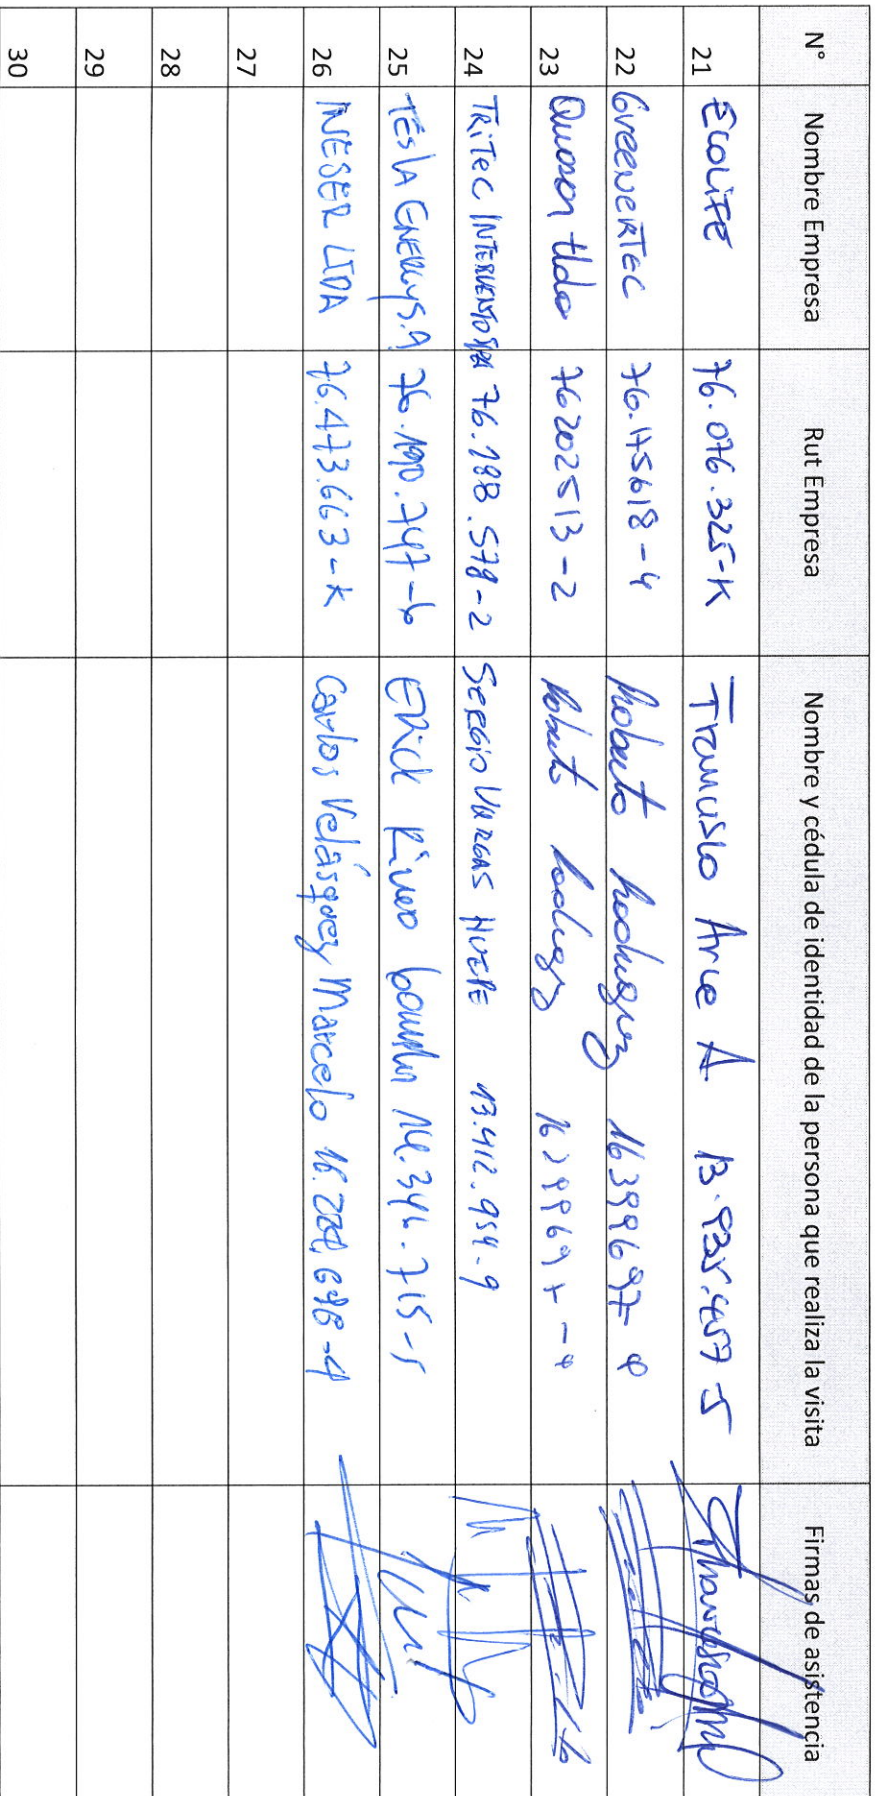 N° Nombre Empresa Rut Empresa Nombre y cédula de identidad de la persona que realiza la visita Firmas de asistencia
21 ECOLIFE 76.076.325-K Arce A 13.935.457-5
22 GREENERTEC 76.175618-4 Roberto Rodriguez 16399697-4
23 76202513-2 Roberto Rodriguez
24 TRITEC INTERVENTO SPA 76.188.578-2 SERGIO VARGAS HUEPE 13.412.954-9
25 TESLA ENERGY S.A 76.190.747-6 ERICK 14.346.715-5
26 INESER LTDA 76.473.663-K Carlos Velásquez Marcelo
27
28
29
30